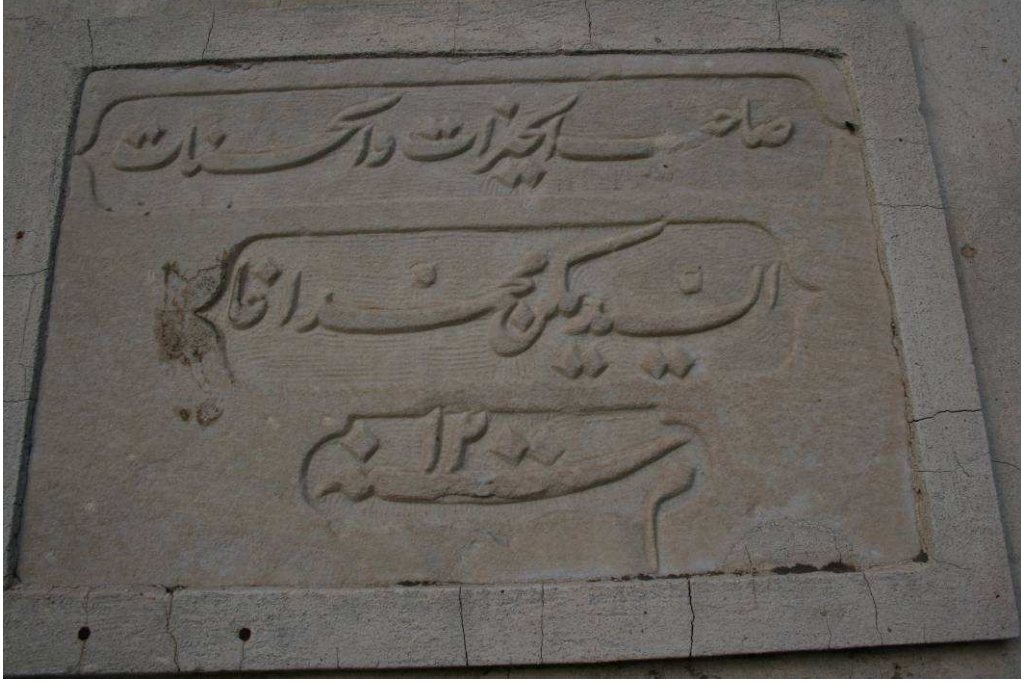 صاحب الخيرات والحسنات
السيد يكن محمد اغا
م سنه ١٢٠٠